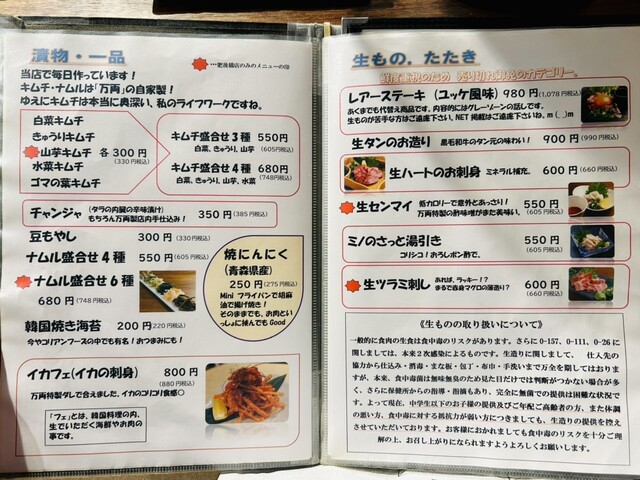 漬物・一品
…肥後橋店のみのメニューの印
当店で毎日作っています！
キムチ・ナムルは「万両」の自家製！
ゆえにキムチは本当に奥深い、私のライフワークですね。
白菜キムチ
きゅうりキムチ
山芋キムチ 各300円
(330円税込)
水菜キムチ
ゴマの葉キムチ
キムチ盛合せ3種 550円
白菜、きゅうり、山芋 (605円税込)
キムチ盛合せ4種 680円
白菜、きゅうり、山芋、水菜 (748円税込)
チャンジャ (タラの内臓の辛味漬け) もちろん万両製店内手仕込み！ 350円(385円税込)
豆もやし 300円(330円税込)
ナムル盛合せ4種 550円(605円税込)
ナムル盛合せ6種
680円(748円税込)
焼にんにく
(青森県産)
250円(275円税込)
Mini フライパンで胡麻
油で揚げ焼き！
そのままでも、お肉とい
っしょに挟んでもGood
韓国焼き海苔 200円(220円税込)
今やコリアンフーズの中でも有名！おつまみにも！
イカフェ(イカの刺身) 800円
(880円税込)
万両特製ダレで合えました、イカのコリコリ食感〇
「フェ」とは、韓国料理の内、
生でいただく海鮮やお肉の
事です。
生もの、たたき
鮮度重視のため 売り切れ御免のカテゴリー。
レアーステーキ(ユッケ風味) 980円(1,078円税込)
あくまでも代替え商品です。内容的にはグレーゾーンの話しです。
生ものが苦手な方はご遠慮下さい。NET掲載はご遠慮下さいね。m(_ _)m
生タンのお造り 黒毛和牛のタン元の味わい！ 900円(990円税込)
生ハートのお刺身 ミネラル補充。 600円(660円税込)
生センマイ 低カロリーで意外とあっさり！ 550円
万両特製の酢味噌がまた美味い。 (605円税込)
ミノのさっと湯引き 550円
コリシコ！おろしポン酢で、 (605円税込)
生ツラミ刺し あれば、ラッキー！？ 600円
まるで赤身マグロの薄造り？ (660円税込)
《生ものの取り扱いについて》
一般的に食肉の生食は食中毒のリスクがあります。さらにO-157、O-111、O-26に
関しましては、本来2次感染によるものです。生造りに関しまして、 仕入先の
協力から仕込み・消毒・まな板・包丁・布巾・手洗いまで万全を期しております
が、本来、食中毒菌は無味無臭のため見た目だけでは判断がつかない場合が多
く、さらに保健所からの指導・指摘もあり、完全に無菌での提供は困難な状況で
す。よって現在、中学生以下のお子様の提供及びご年配ご高齢者の方、また体調
の悪い方、食中毒に対する抵抗力が弱い方につきましても、生造りの提供を控え
させていただいております。お客様におかれましても食中毒のリスクを十分ご理
解の上、お召し上がりになられますようよろしくお願いします。